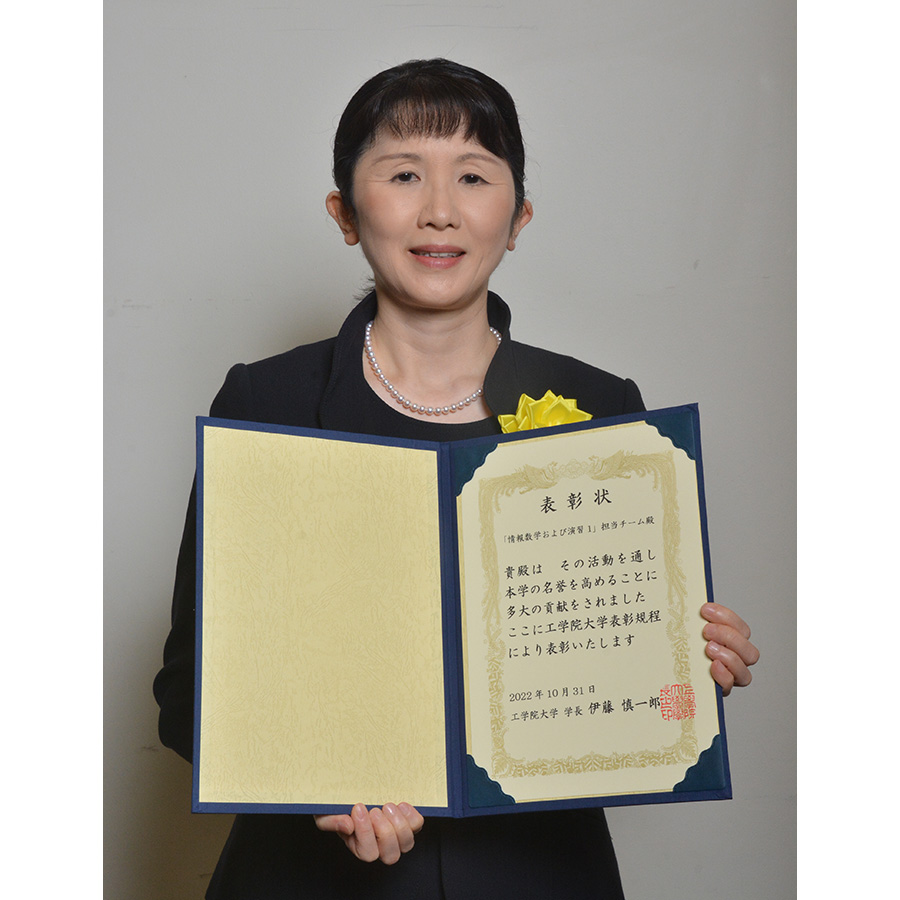 表彰状
「情報数学および演習1」担当チーム殿
貴殿は その活動を通し
本学の名誉を高めることに
多大の貢献をされました
ここに工学院大学表彰規程
により表彰いたします
2022年10月31日
工学院大学 学長 伊藤 慎一郎